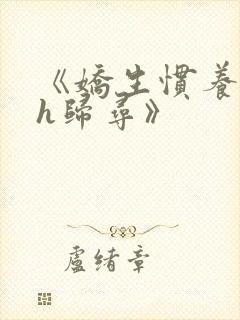 《嬌生慣養
h歸尋》
盧緒章